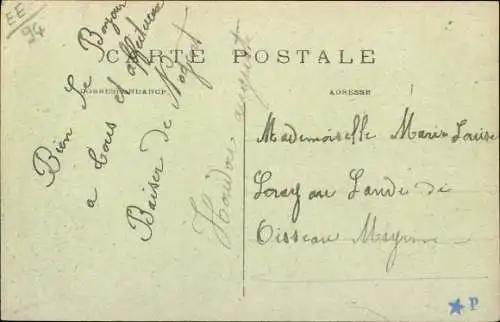 EE
94
CARTE POSTALE
CORRESPONDANCE
ADRESSE
Bien le Bonjour
a tous et affectueux
Baiser de Nogent
auguste
Mademoiselle Marie Louise
au Lande de
Oisseau Mayenne
P